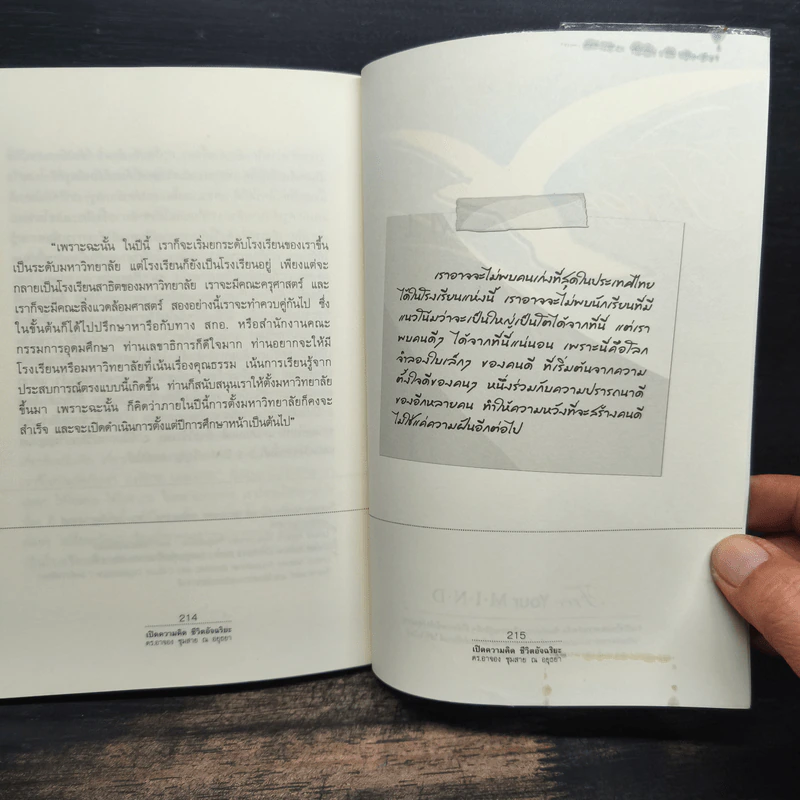 "เพราะฉะนั้น ในปีนี้ เราก็จะเริ่มยกระดับโรงเรียนของเราขึ้น
เป็นระดับมหาวิทยาลัย แต่โรงเรียนก็ยังเป็นโรงเรียนอยู่ เพียงแต่จะ
กลายเป็นโรงเรียนสาธิตของมหาวิทยาลัย เราจะมีคณะครุศาสตร์ และ
เราก็จะมีคณะสิ่งแวดล้อมศาสตร์ สองอย่างนี้เราจะทำควบคู่กันไป ซึ่ง
ในขั้นต้นก็ได้ไปปรึกษาหารือกับทาง สกอ. หรือสำนักงานคณะ
กรรมการอุดมศึกษา ท่านเลขาธิการก็ดีใจมาก ท่านอยากจะให้มี
โรงเรียนหรือมหาวิทยาลัยที่เน้นเรื่องคุณธรรม เน้นการเรียนรู้จาก
ประสบการณ์ตรงแบบนี้เกิดขึ้น ท่านก็สนับสนุนเราให้ตั้งมหาวิทยาลัย
ขึ้นมา เพราะฉะนั้น ก็คิดว่าภายในปีนี้การตั้งมหาวิทยาลัยก็คงจะ
สำเร็จ และจะเปิดดำเนินการตั้งแต่ปีการศึกษาหน้าเป็นต้นไป"
214
เปิดความคิด ชีวิตอัจฉริยะ
ดร.อาจอง ชุมสาย ณ อยุธยา
เราอาจจะไม่พบคนเก่งที่สุดในประเทศไทย
ได้ในโรงเรียนแห่งนี้ เราอาจจะไม่พบนักเรียนที่มี
แนวโน้มว่าจะเป็นใหญ่เป็นโตได้จากที่นี่ แต่เรา
พบคนดีๆ ได้จากที่นี่แน่นอน เพราะนี่คือโลก
จำลองใบเล็กๆ ของคนดี ที่เริ่มต้นจากความ
ตั้งใจดีของคนๆ หนึ่งร่วมกับความปรารถนาดี
ของอีกหลายคน ทำให้ความหวังที่จะสร้างคนดี
ไม่ใช่แค่ความฝันอีกต่อไป
Free Your M·I·N·D
215
เปิดความคิด ชีวิตอัจฉริยะ
ดร.อาจอง ชุมสาย ณ อยุธยา